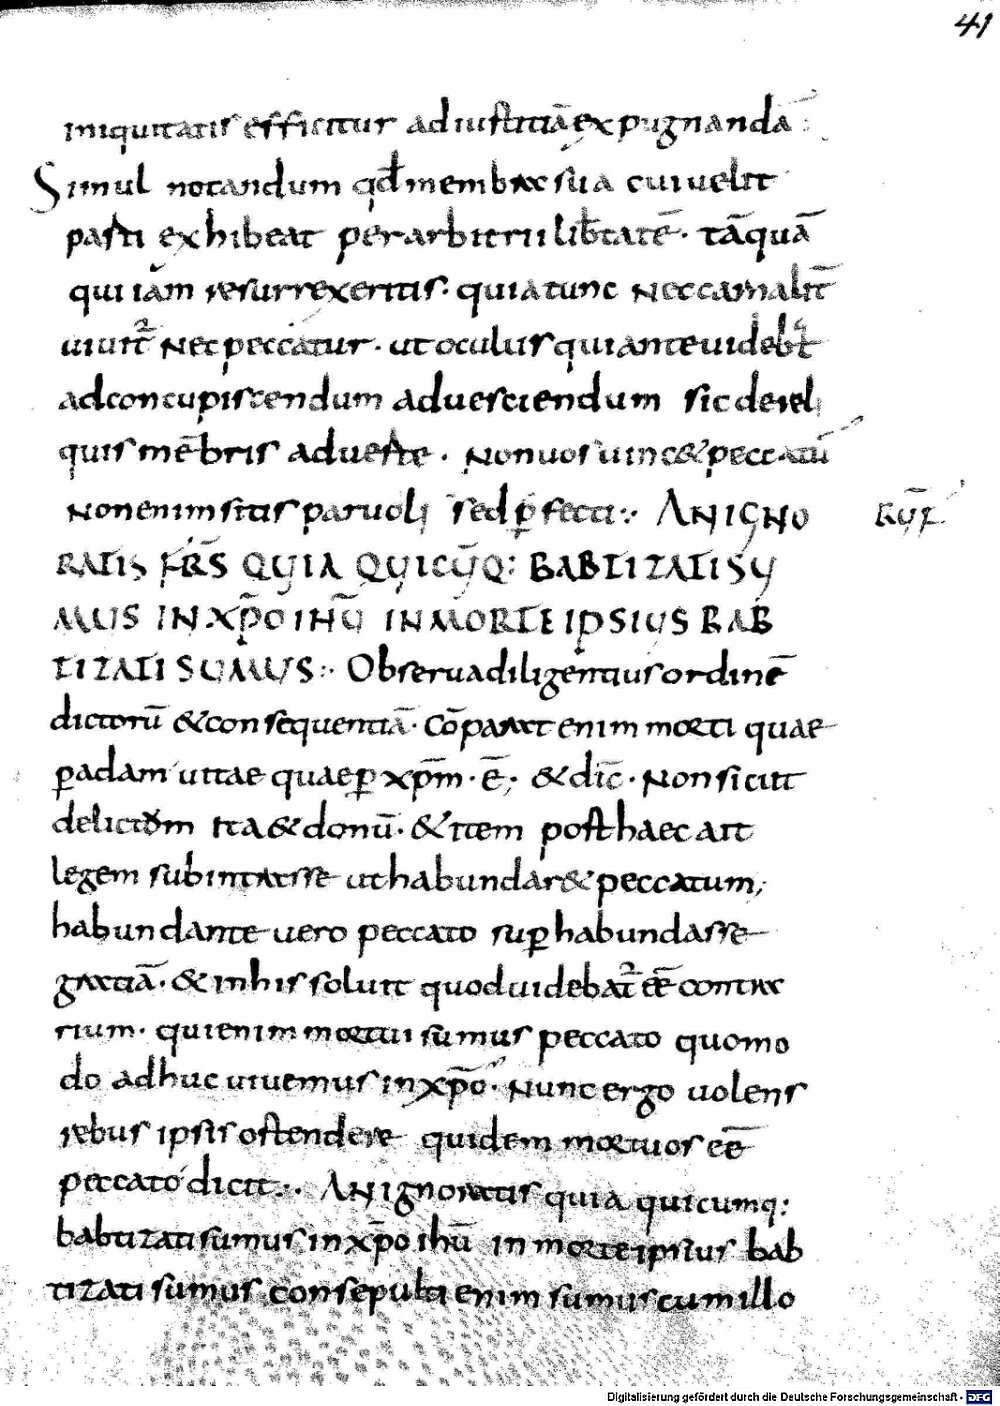 41
iniquitatis efficitur ad iustitiā expugnandā:
Simul notandum qđ membra sua cui uelit
parti exhibeat per arbitrii lib̄tatē · tāquā
qui iam resurrexeritis · quia tunc nec carnalit̄
uiuit᷑ nec peccatur · ut oculus qui ante uidebat᷑
ad concupiscendum ad uesciendum sic de reli
quis mēbris adueste · Non uos uinc& peccatū
Non enim sitis paruoli sed ꝑfecti:· AN IGNO RUF̄
RATIS FR̄S QUIA QUICŪQ: BABTIZATI SU
MUS IN XP̄O IHŪ IN MORTE IPSIUS BAB
TIZATI SUMUS:· Obserua diligentius ordinē
dictorū & consequentiā · Cōparat enim morti quae
ꝑ adam uitae quae ꝑ xp̄m · ē; & dic̄ · Non sicut
delictum ita & donū · & item post haec ait
legem subintrasse ut habundar& peccatum,
habundante uero peccato suꝑhabundasse
gratiā · & in his soluit quod uidebat᷑ eē contra
rium · qui enim mortui sumus peccato quomo
do adhuc uiuemus in xp̄o · Nunc ergo uolens
rebus ipsis ostendere quidem mortuos eē
peccato dicit:· AN ignoratis quia quicumq:
babtizati sumus in xp̄o ihū in morte ipsius bab
tizati sumus consepulti enim sumus cum illo
Digitalisierung gefördert durch die Deutsche Forschungsgemeinschaft - DFG